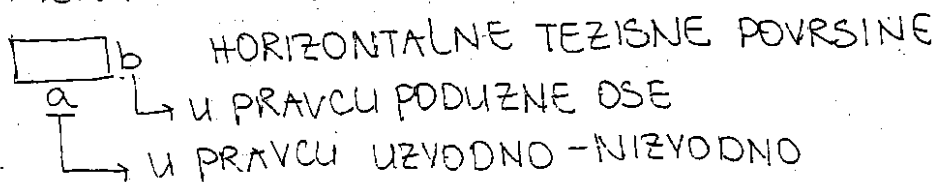 b HORIZONTALNE TEZISNE POVRSINE
a → U PRAVCU PODUZNE OSE
→ U PRAVCU UZVODNO - NIZVODNO